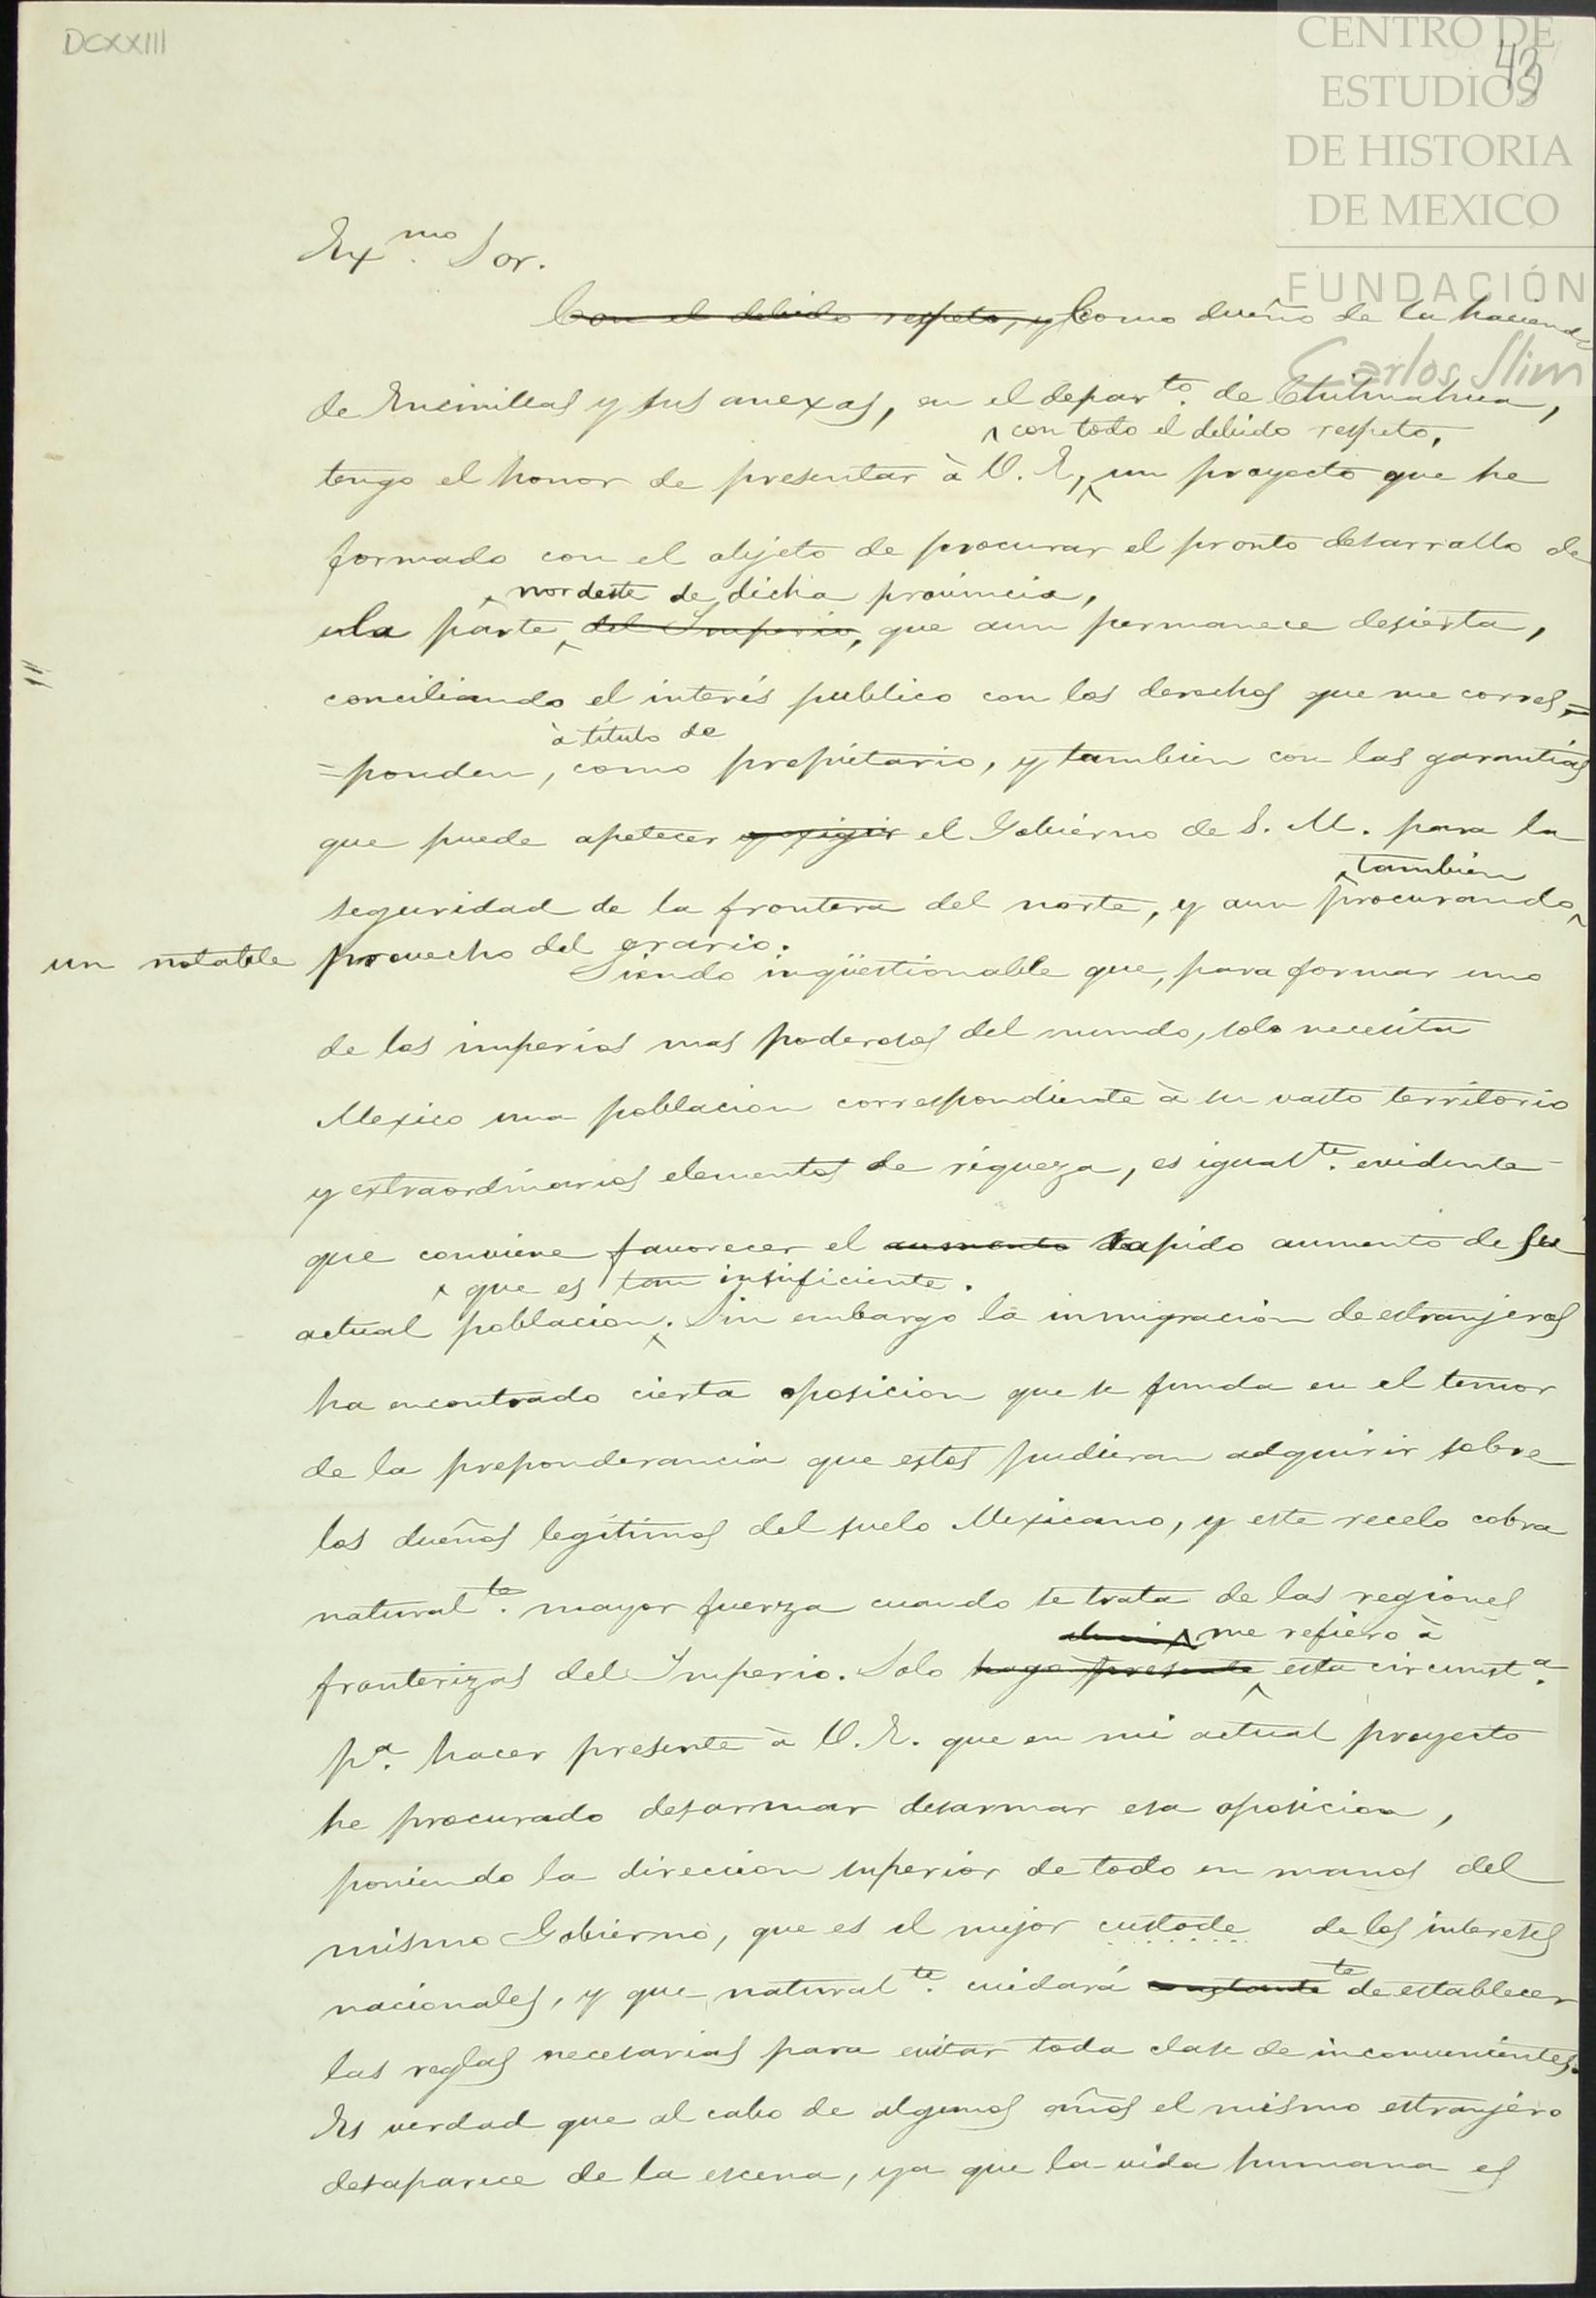 DCXXIII
CENTRO DE
ESTUDIOS
DE HISTORIA
DE MEXICO
FUNDACIÓN
Carlos Slim
43
Exmo. Sor.
Con el debido respeto, y Como dueño de la hacienda
de Encinillas y sus anexas, en el departo. de Chihuahua,
con todo el debido respeto,
tengo el honor de presentar à V. E, un proyecto que he
formado con el objeto de procurar el pronto desarrollo de
nordeste de dicha provincia,
la parte del Imperio, que aun permanece desierta,
conciliando el interés publico con los derechos que me corres,=
à título de
=ponden, como propietario, y tambien con las garantias
que puede apetecer y exigir el Gobierno de S. M. para la
tambien
seguridad de la frontera del norte, y aun procurando,
un notable provecho del erario.
Siendo inqüestionable que, para formar uno
de los imperios mas poderosos del mundo, solo necesita
Mexico una poblacion correspondiente à su vasto territorio
y extraordinarios elementos de riqueza, es igualte. evidente
que conviene favorecer el aumento rapido aumento de su
que es tan insuficiente.
actual poblacion. Sin embargo la inmigración de estranjeros
ha encontrado cierta oposicion que se funda en el temor
de la preponderancia que estos pudieran adquirir sobre
los dueños legítimos del suelo Mexicano, y este recelo cobra
naturalte. mayor fuerza cuando se trata de las regiones
me refiero à
fronterizas del Imperio. Solo hago presente esta circunsta.
pa. hacer presente à V. E. que en mi actual proyecto
he procurado desarmar desarmar esa oposicion,
poniendo la direccion superior de todo en manos del
mismo Gobierno, que es el mejor custode de los intereses
nacionales, y que naturalte. cuidará constantete de establecer
las reglas necesarias para evitar toda clase de inconvenientes.
Es verdad que al cabo de algunos años el mismo estranjero
desaparece de la escena, ya que la vida humana es